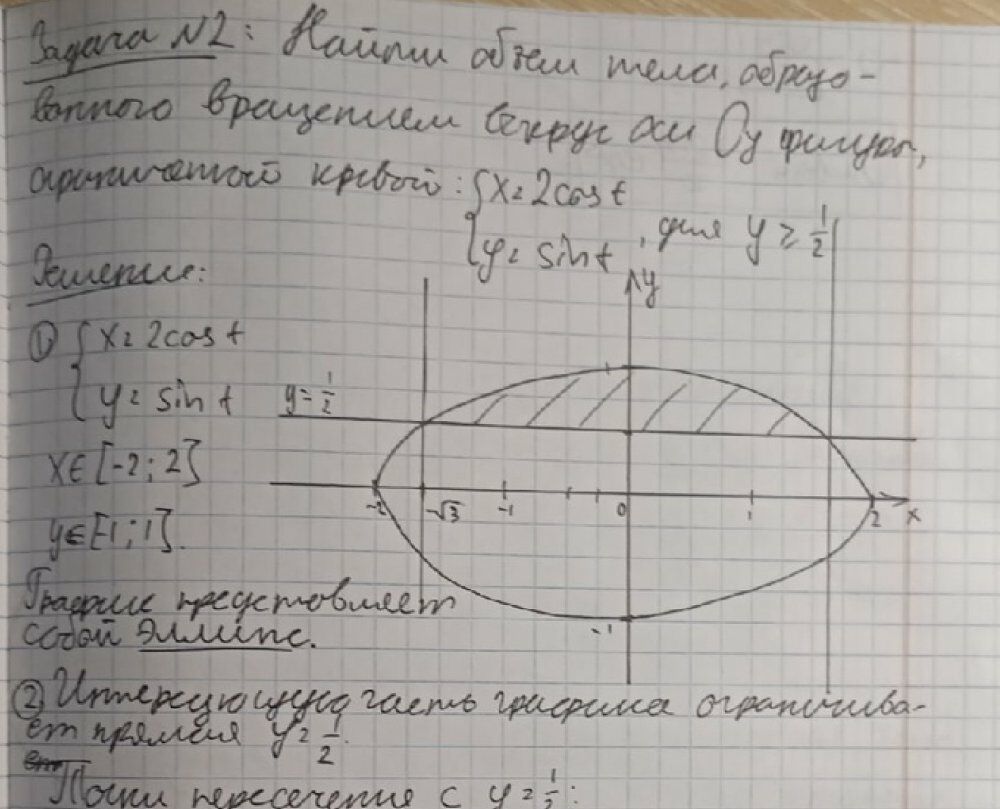 Задача №2: Найти объем тела, образо-
ванного вращением вокруг оси Oy фигуры,
ограниченной кривой: { x = 2cos t
{ y = sin t , для y ≥ 1/2
Решение:
y
① { x = 2cos t
{ y = sin t
y = 1/2
x ∈ [-2; 2]
-2 -√3 -1 0 1 2 x
y ∈ [-1; 1].
График представляет
собой эллипс.
-1
② Интересующую часть графика ограничива-
ет прямая y = 1/2.
Точки пересечение с y = 1/2: